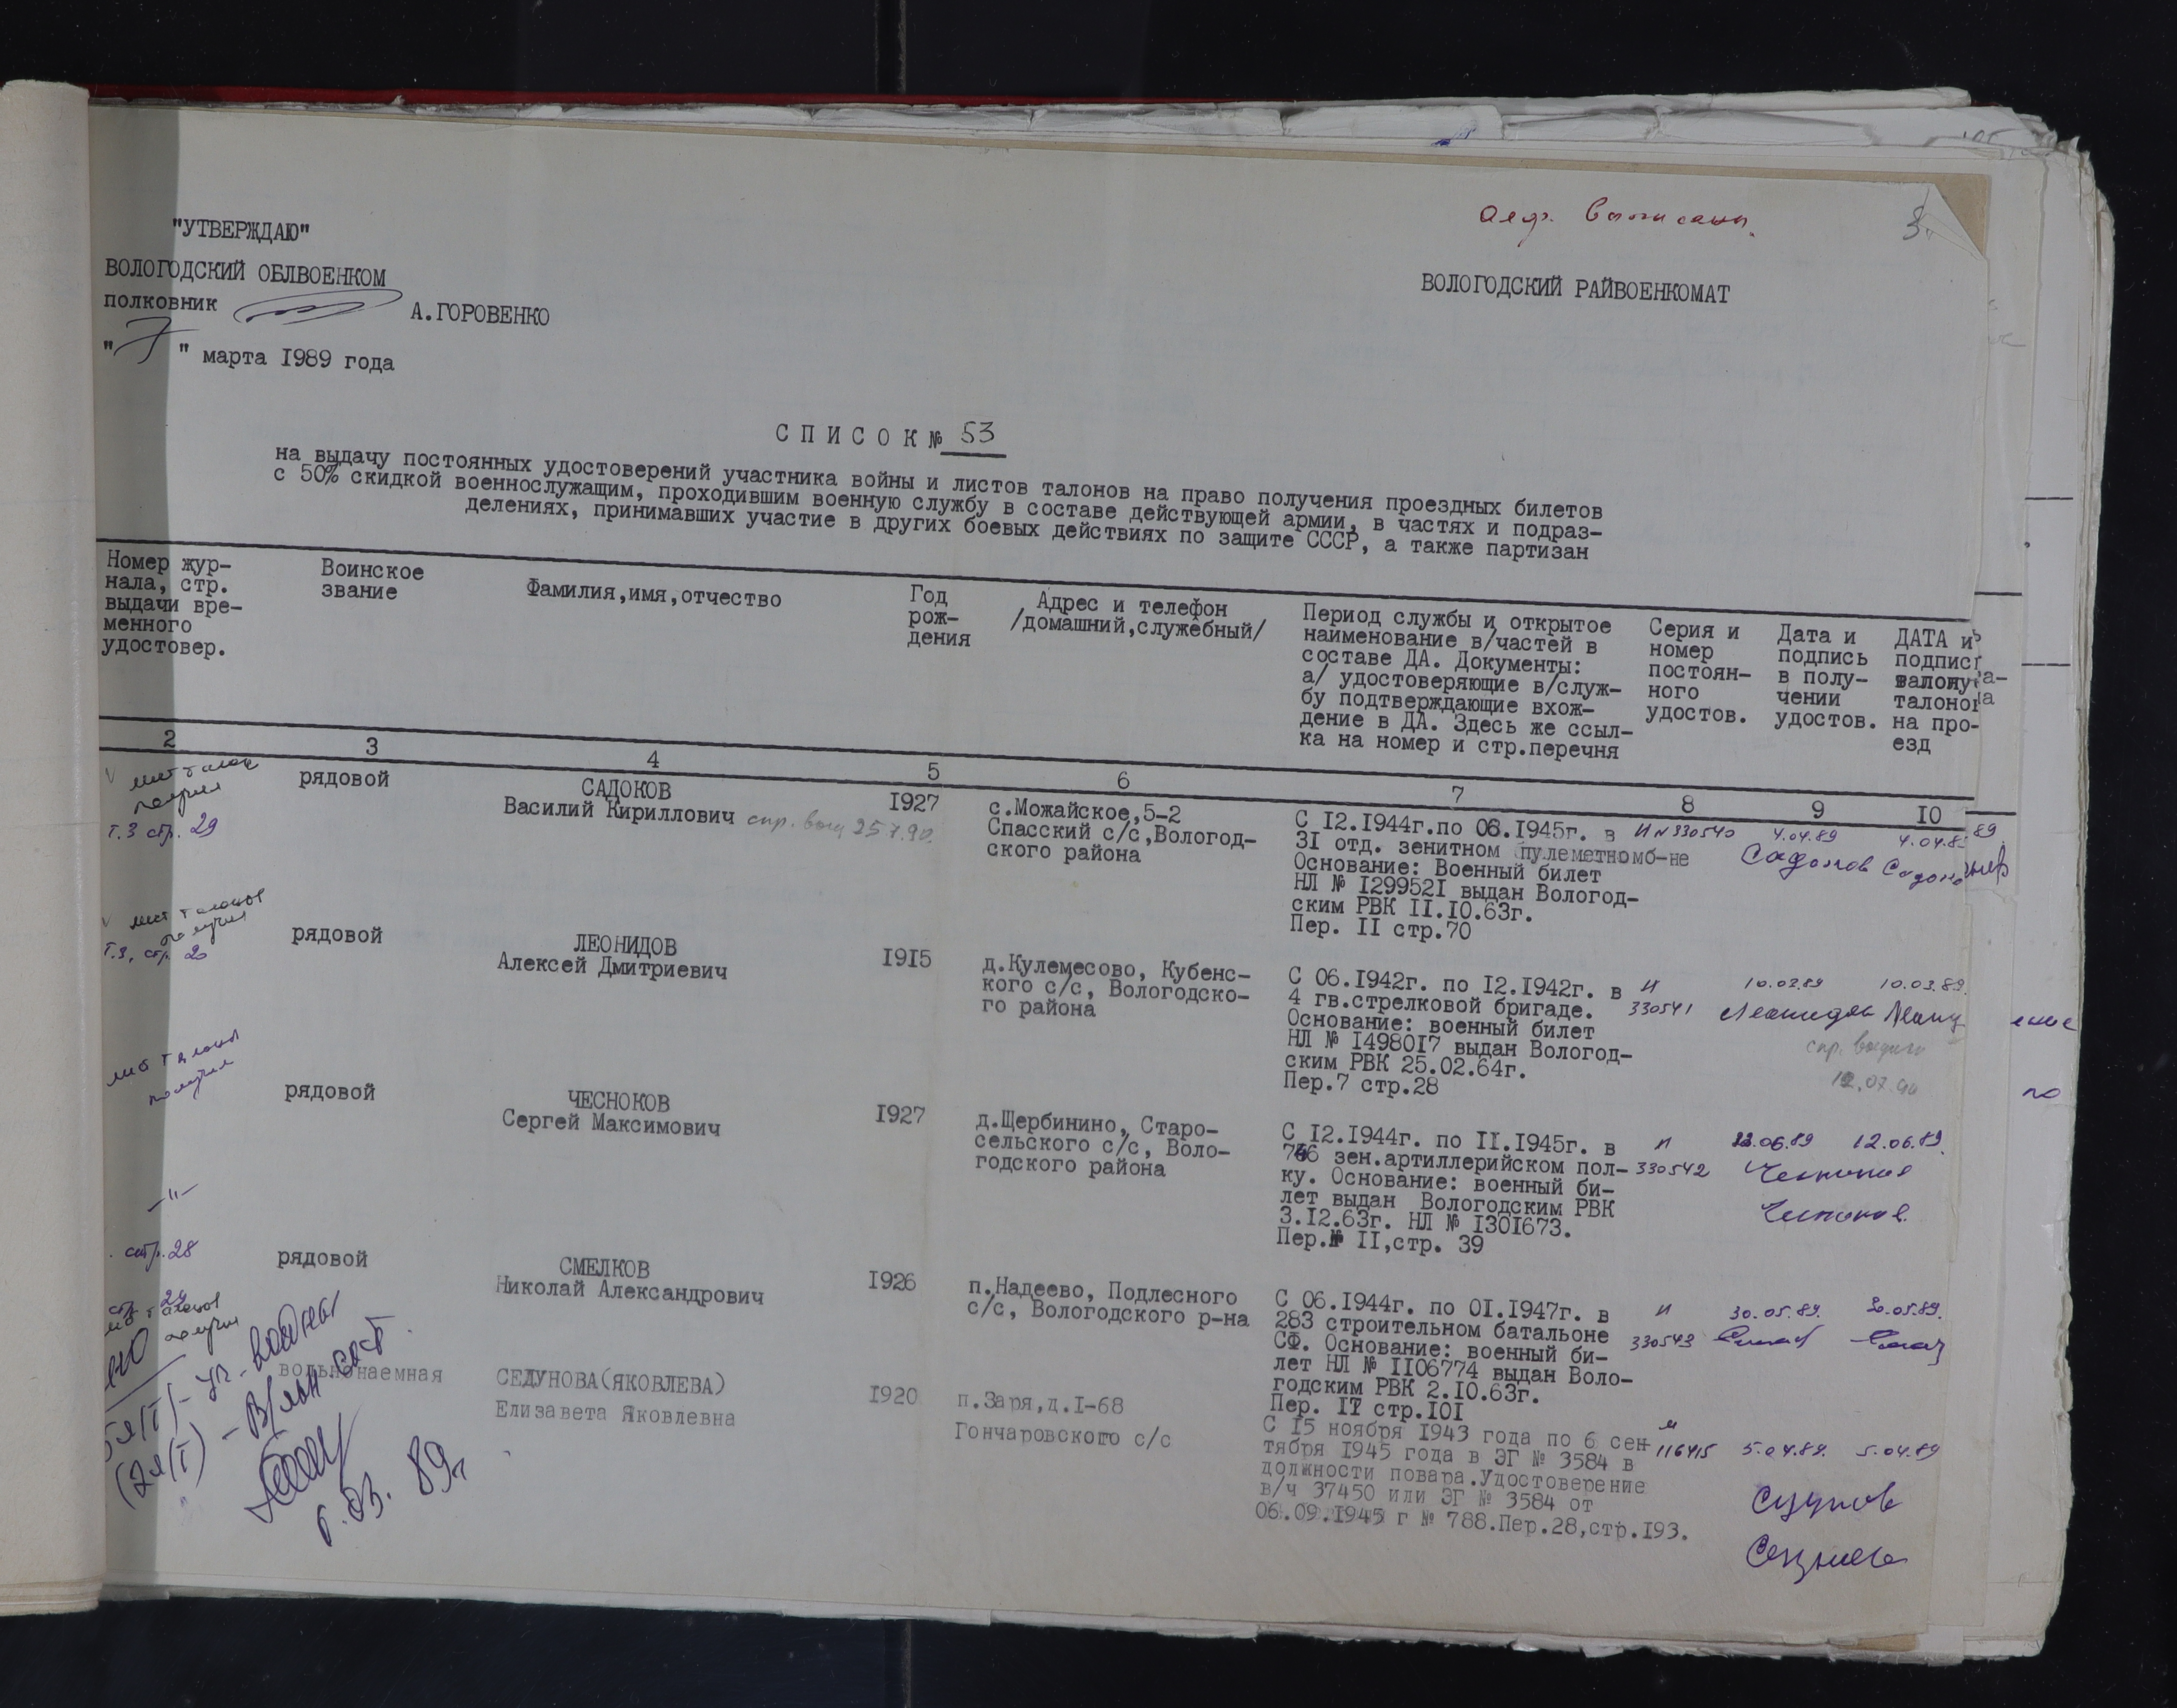 алф. выписаны.
3.
"УТВЕРЖДАЮ"
ВОЛОГОДСКИЙ ОБЛВОЕНКОМ
полковник А.ГОРОВЕНКО
"7" марта 1989 года
ВОЛОГОДСКИЙ РАЙВОЕНКОМАТ
СПИСОК № 53
на выдачу постоянных удостоверений участника войны и листов талонов на право получения проездных билетов
с 50% скидкой военнослужащим, проходившим военную службу в составе действующей армии, в частях и подраз-
делениях, принимавших участие в других боевых действиях по защите СССР, а также партизан
Номер жур-
нала, стр.
выдачи вре-
менного
удостовер.
Воинское
звание
Фамилия,имя,отчество
Год
рож-
дения
Адрес и телефон
/домашний,служебный/
Период службы и открытое
наименование в/частей в
составе ДА. Документы:
а/ удостоверяющие в/служ-
бу подтверждающие вхож-
дение в ДА. Здесь же ссыл-
ка на номер и стр.перечня
Серия и
номер
постоян-
ного
удостов.
Дата и
подпись
в полу-
чении
удостов.
ДАТА и
подпис
талону
талоно
на про-
езд
2 3 4 5 6 7 8 9 10
лист талон
получил
т.3 стр. 29
рядовой
САДОКОВ
Василий Кириллович спр. выд 25.7.90.
1927
с.Можайское,5-2
Спасский с/с,Вологод-
ского района
С 12.1944г.по 08.1945г. в
31 отд. зенитном пулеметномб-не
Основание: Военный билет
НЛ № 1299521 выдан Вологод-
ским РВК 11.10.63г.
Пер. 11 стр.70
И № 330540
4.04.89
Садоков
4.04.8
Садоко
89
лист талонов
получил
т.3, стр. 20
рядовой
ЛЕОНИДОВ
Алексей Дмитриевич
1915
д.Кулемесово, Кубенс-
кого с/с, Вологодско-
го района
С 06.1942г. по 12.1942г. в
4 гв.стрелковой бригаде.
Основание: военный билет
НЛ № 1498017 выдан Вологод-
ским РВК 25.02.64г.
Пер.7 стр.28
И
330541
10.03.89
Леонидов
10.03.89.
спр. выдана
12.07.90
лист талонов
получил
рядовой
ЧЕСНОКОВ
Сергей Максимович
1927
д.Щербинино, Старо-
сельского с/с, Воло-
годского района
С 12.1944г. по 11.1945г. в
746 зен.артиллерийском пол-
ку. Основание: военный би-
лет выдан Вологодским РВК
3.12.63г. НЛ № 1301673.
Пер.№ 11,стр. 39
И
330542
12.06.89
12.06.89.
Чесноков
Чесноков
-"-
стр. 28
рядовой
СМЕЛКОВ
Николай Александрович
1926
п.Надеево, Подлесного
с/с, Вологодского р-на
С 06.1944г. по 01.1947г. в
283 строительном батальоне
СФ. Основание: военный би-
лет НЛ № 1106774 выдан Воло-
годским РВК 2.10.63г.
Пер. 17 стр.101
И
330543
30.05.89.
30.05.89.
стр. 29
талонов
получил
вольнонаемная
СЕДУНОВА(ЯКОВЛЕВА)
Елизавета Яковлевна
1920
п.Заря,д.1-68
Гончаровского с/с
С 15 ноября 1943 года по 6 сен-
тября 1945 года в ЭГ № 3584 в
должности повара.Удостоверение
в/ч 37450 или ЭГ № 3584 от
06.09.1945 г № 788.Пер.28,стр.193.
116415
5.04.89.
5.04.89
6.03. 89г.